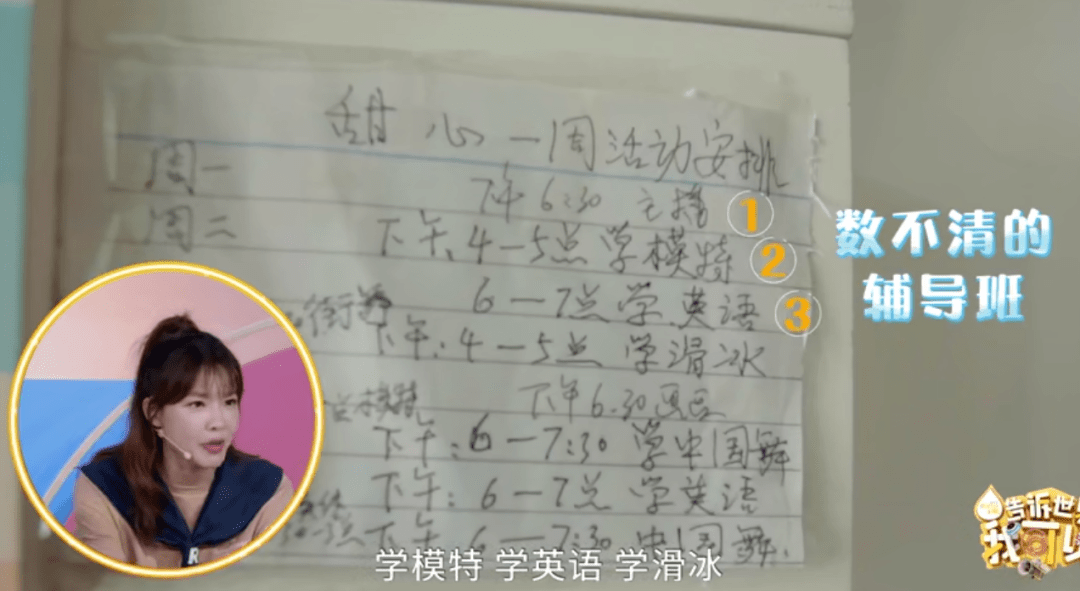 甜心一周活动安排
周一
下午6:30 主播 ①
周二
下午、4-5点学模特 ②
数不清的
辅导班
6-7点学英语 ③
街道
下午:4-5点 学滑冰
下午6.30画画
模特
下午:6-7:30 学中国舞
下午:6-7点 学英语
下午:6-7:30 中国舞
R
告诉世界
我可以
学模特 学英语 学滑冰